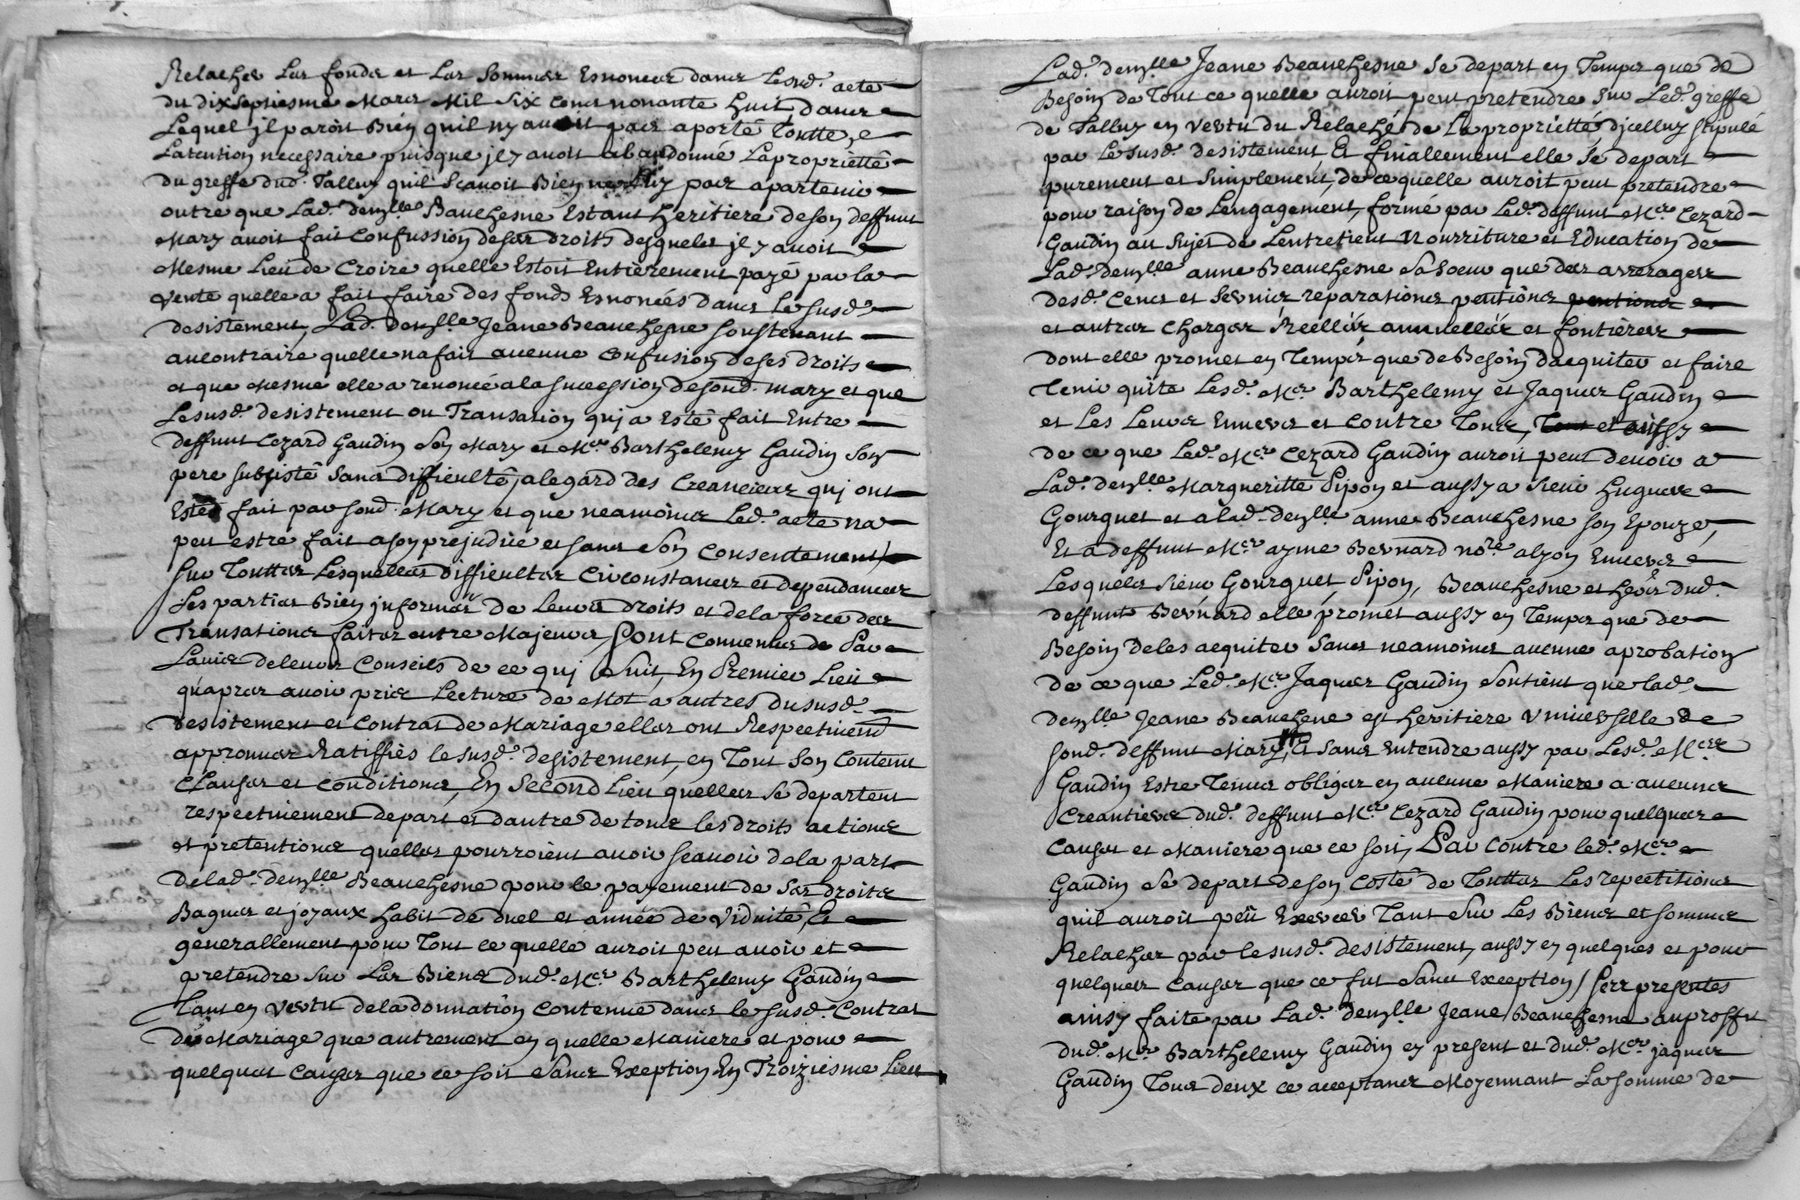 Relaches Les fonds et Les Sommes Esnonces dans Lesusd. acte
du dixseptiesme Mars Mil Six cens nonante huit, dans
Lequel jl paroit Bien quil ny avoit pas aporté Toutte,
Latention necessaire puisque jl y avoit abandonné Lapropriettê
du greffe dud. Talluy quil Sçavoit Bien ne luy pas apartenir
outre que Lad. demlle Bauchesne Estant heritiere deson deffunt
Mary avoit fait Confussion deses droits desquels jl y avoit
Mesme Lieu de Croire quelle Estoit Entierement payé par la
vente quelle a fait faire des fonds Esnoncés dans Le susd.
desistement, Lad. demlle Jeane Beauchesne soustenant
aucontraire quelle nafait aucune Confusion deses droits
et que Mesme elle a renoncé ala succession desond. mary et que
Lesusd. desistement ou Transation qui a Esté fait Entre
deffunt Cezard Gaudin Son Mary et Mre Barthelemy Gaudin Son
pere subsistê Sans difficultê, alegard des Creanciers qui ont
Estéd fait par sond. Mary et que neamoins Led. acte na
peu estre fait a son prejudice et sans Son Consentement,
sur Touttes Lesquelles difficultes Circonstances et dependances
Les parties Bien jnformés de Leurs droits et dela force des
Transations faites entre Majeurs, Sont Convenus de Par
Lavis deleurs Conseils de ce qui Suit, En Premier Lieu
quapres avoir prie Lecture de Mot a autres dususd.
desistement et Contrat de Mariage elles ont Respectivement
approuves Ratiffiés lesusd. desistement, en Tout Son Contenu
Clauses et Conditions, En Second Lieu quelles Se departent
respectivement depart et dautre de tous les droits actions
et pretentions quelles pourroient avoir scavoir dela part
delad. demlle Beauchesne pour le payement de Ses droits
Bagues et joyaux habit de duel et année de Viduité, Et
generallement pour Tout ce quelle auroit peu avoir et
pretendre sur Les Biens dud. Mre Barthelemy Gaudin
Tant en vertu deladonnation Contenue dans le susd. Contrat
de Mariage que autrement en quelle Maniere et pour
quelques Causes que ce soit Sans Exeption, En Troiziesme Lieu
Lad. demlle Jeane Beauchesne Se depart en Temps que de
Besoin de Tout ce quelle auroit peut pretendre sur Led. greffe
de Talluy en vertu du Relaché de La propriétté djcelluy stipulé
par Lesusd. desistement Et finallement elle Se depart
purement et simplement, de ce quelle auroit peut pretendre
pour raison de Lengagement, formé par Led. deffunt Mre Cezard
Gaudin au sujet de Lentretient Nourriture et Education de
Lad. demlle anne Beauchesne Sa soeur que des arrerages
desd. Cens et Servis reparations petitions
et autres Charges Réelles annuelles et fontieres
dont elle promet en Temps que de Besoin dacquiter et faire
Tenir quite Lesd. Mre Barthelemy et Jaques Gaudin
et Les Leurs Envers et Contre Tous,
de ce que Led. Mre Cezard Gaudin auroit peut devoir a
Lad. demlle Margueritte Pipon et aussy a Sieur hugues
Gourguet et a lad. demlle anne Beauchesne son Epouze,
Et a deffunt Mre ayme Bernard nore alyon Envers
Lesquels Sieur Gourguet, Pipon, Beauchesne et hers dud.
deffunt Bernard elle promet aussy en Temps que de
Besoin deles acquiter Sans neamoins aucune aprobation
de ce que Led. Mre Jaques Gaudin Soutient que lad.
demlle Jeane Beauchene est heritiere Universelle de
sond. deffunt Mary, Et sans Entendre aussy par Lesd. Mres
Gaudin Estre Tenus obliges en aucune Maniere a aucuns
Creantiers dud. deffunt Mre Cezard Gaudin pour quelques
Causes et Maniere que ce soit, Par Contre led. Mre
Gaudin Se depart deson Costé de Touttes Les repetitions
quil auroit peû Exercer Tant Sur Les Biens et sommes
Relaches par le susd. desistement, aussy en quelques et pour
quelques Causes que ce fut Sans Exception, Les presentes
ainsy faite par Lad. demlle Jeane Beauchesne auproffit
dud. Mre Barthelemy Gaudin cy present et dud. Mre jaques
Gaudin Tous deux ce acceptans Moyennant La somme de